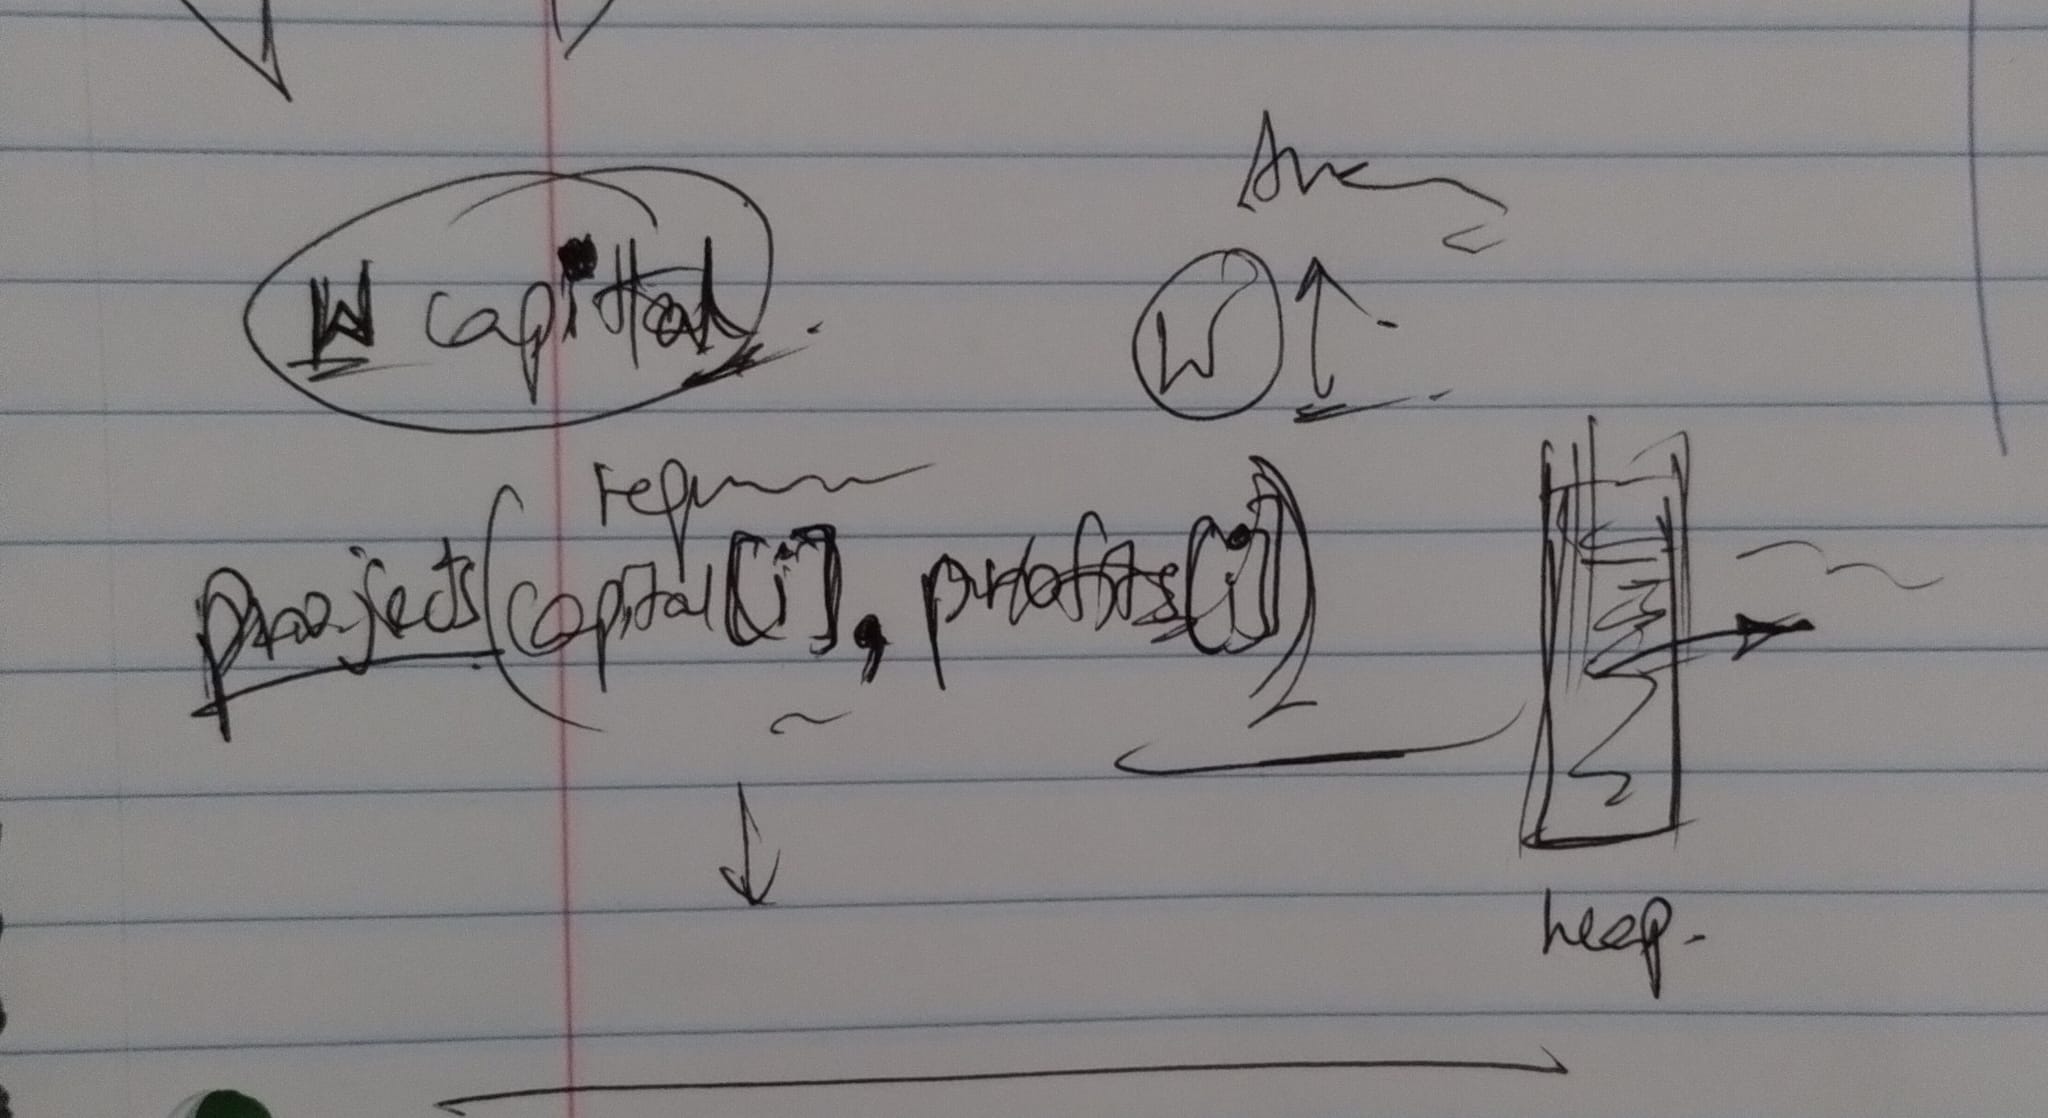 W capital
W
projects (capital[i], profits[i])
heap.